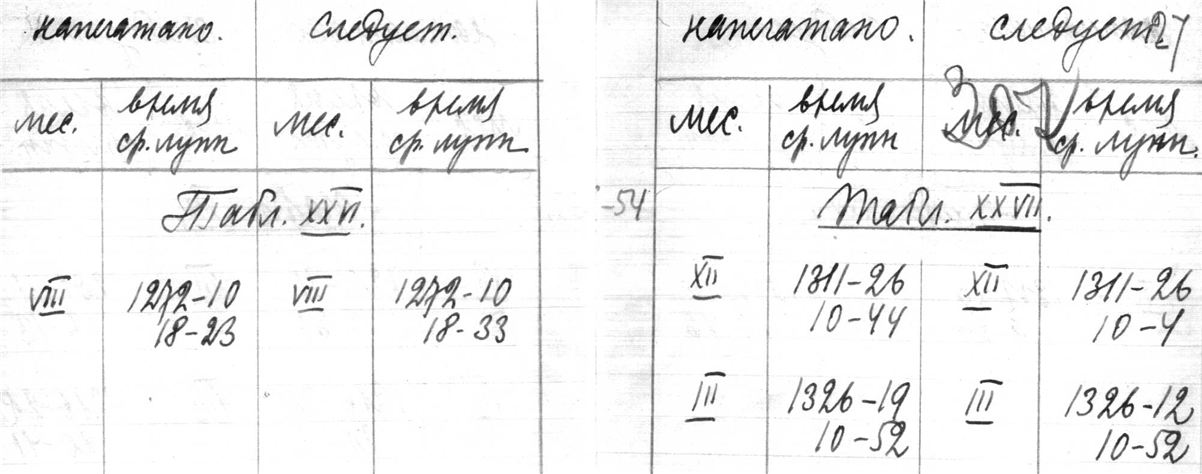 напечатано. следует.
мес. время ср. лупн мес. время ср. лупн
Табл. XXVI.
VIII 1272-10 VIII 1272-10
18-23 18-33
напечатано. следует
мес. время ср. лупн мес. время ср. лупн.
-54
Табл. XXVII.
XII 1311-26 XII 1311-26
10-44 10-4
III 1326-19 III 1326-12
10-52 10-52